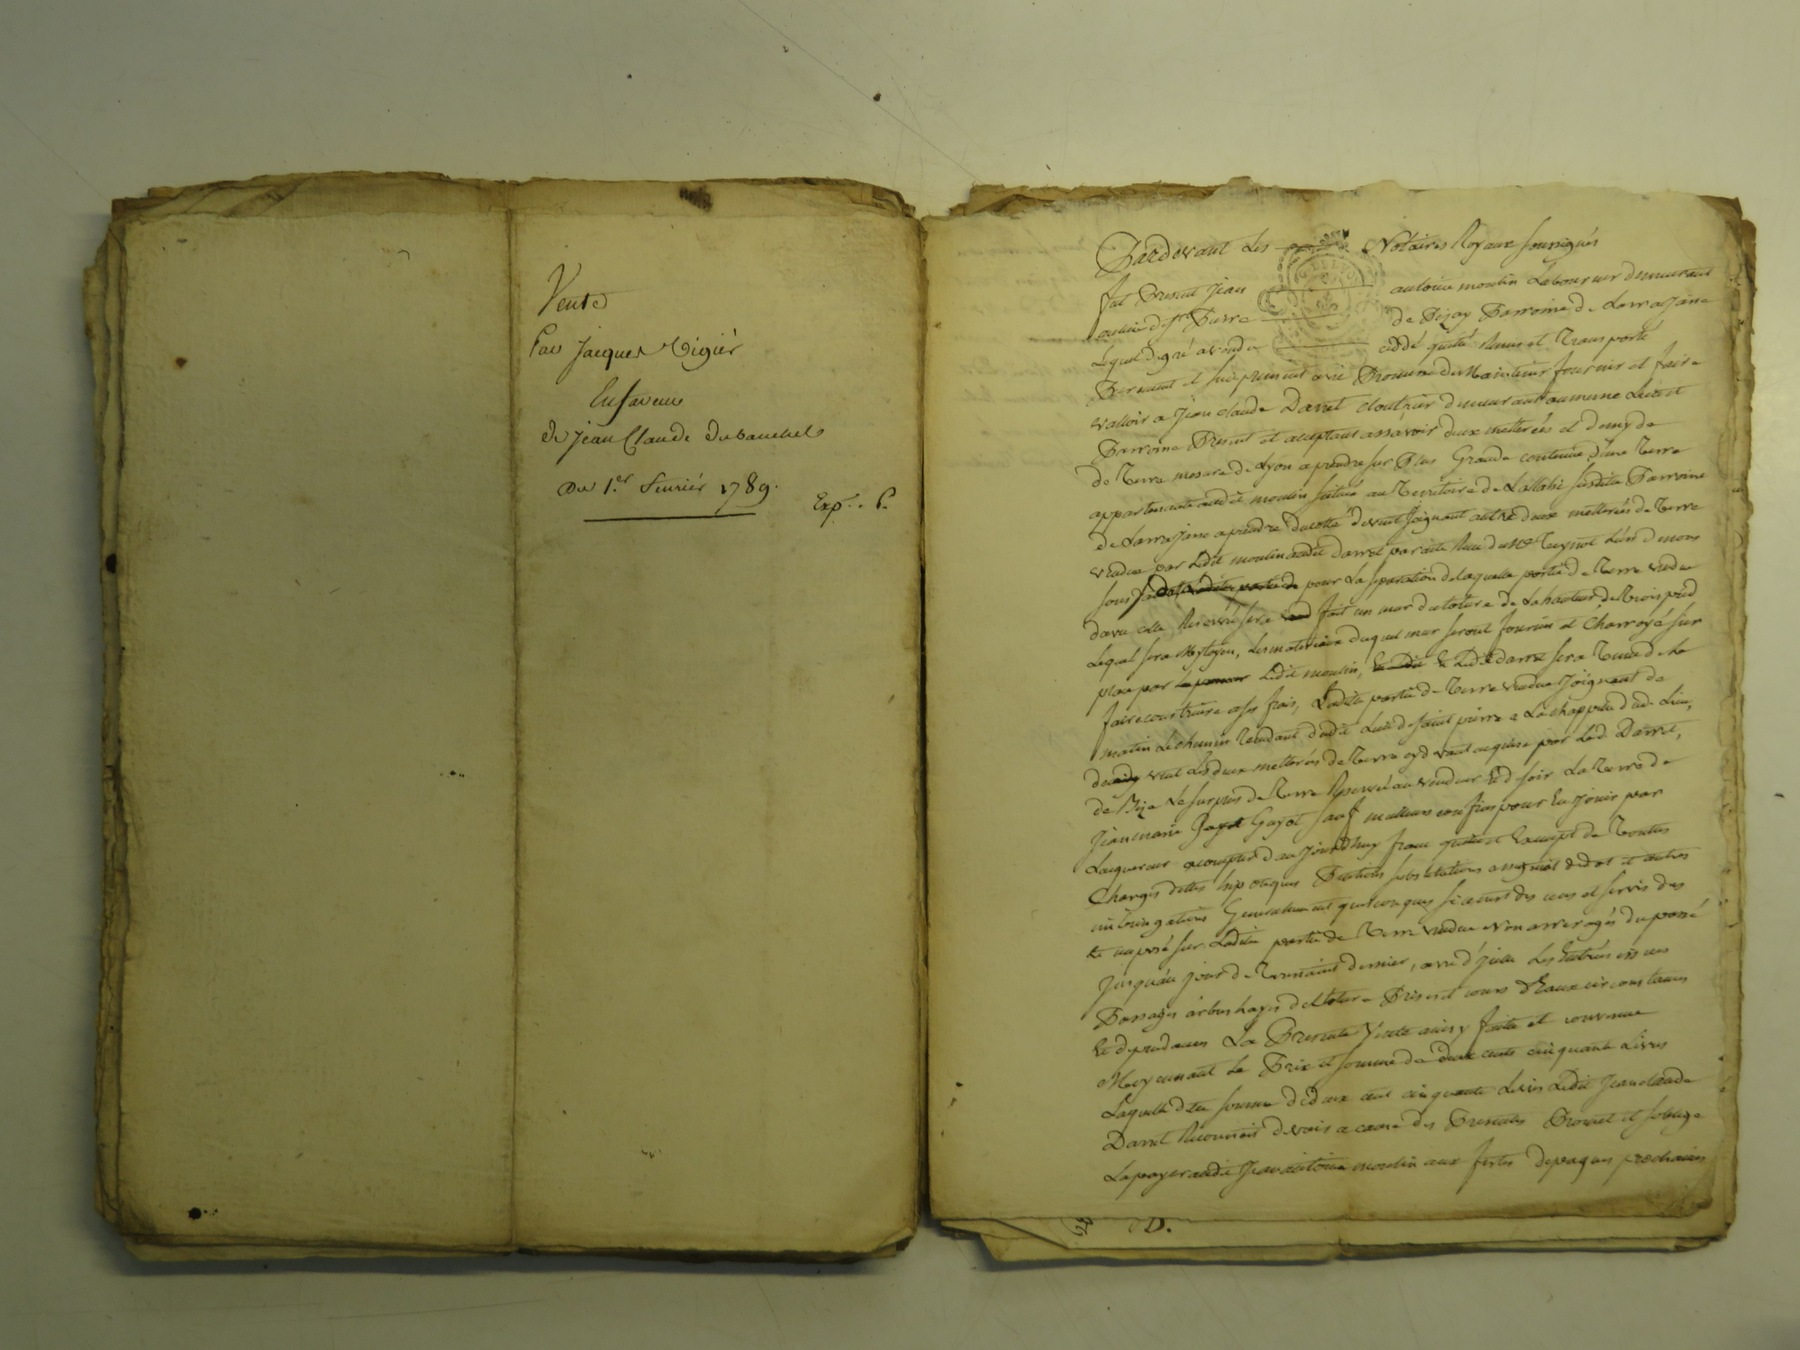 Vente
Par Jacques Vigier
En faveur
de Jean Claude Dubanchet
Du 1.er fevrier 1789.
Exp. . P.
Pardevant Les Notaires Royaux soussignés
fut Present Jean antoine moulin Laboureur demeurant
de Bizay Parroisse de Larrajasse
Lequel de gré a vendu cédé quitté Remis et Transporté
Purement et simplement avec Promesse de Maintenir fournir et faire
valloir a Jean claude Darret cloutrier demeurant au meme Lieu et
Parroisse Present et acceptant assavoir deux metterées et demy de
de Terre mesure de Lyon a prendre sur Plus Grande contenue d'une Terre
appartenante audit moulin située au Territoire de susdite Parroisse
de Larrajasse a prendre du cotté de vent Joignant autre deux metterées de Terre
vendue par Ledit moulin audit darret par acte Reçu de Me L'un de nous
pour La separation de laquelle partie de Terre vendue
d'avec celle Reservé sera fait un mur de cloture de La hauteur de Trois pied
Lequel sera Mytoyen, Les materiaux duquel mur seront fournis et Charroyé sur
place par Ledit moulin, Et Ledit darret sera Tenu de Le
faire construire a ses frais, Ladite partie de Terre vendue Joignant de
matin Le chemin Tendant dudit Lieu de saint pierre a La chappelle dud. Lieu,
de vent Les deux metterées de Terre cy devant acquise par Led. Darret,
de Bize Le surplus de Terre Reservé au vendeur Et de soir La Terre de
Jean marie Gayot sauf meilleurs confins pour En Jouir par
L'acquereur a compter d'au Jourdhuy franc quitte et Exempt de Toutes
Charges dettes hipoteques Pentions substitutions et autres
Generalement quelconques si ce n'est des cens et servis dus
et imposé sur Ladite partie de Terre vendue non arreragés du passé
Jusqu'au jour de Toussaint dernier, avec d'Jcelle Les Entrées issues
Passages arbres hayes de cloture Prises et cours d'Eaux circonstances
Et dependances La Presente Vente ainsy faite et convenue
Moyennant Le Prix et somme de deux cents cinquante Livres
Laquelle dite somme de deux cent cinquante Livres Ledit Jean claude
Darret Reconnoit devoir a cause des Presentes Promet et s'oblige
La payer audit Jean antoine moulin aux festes de paques prochaines